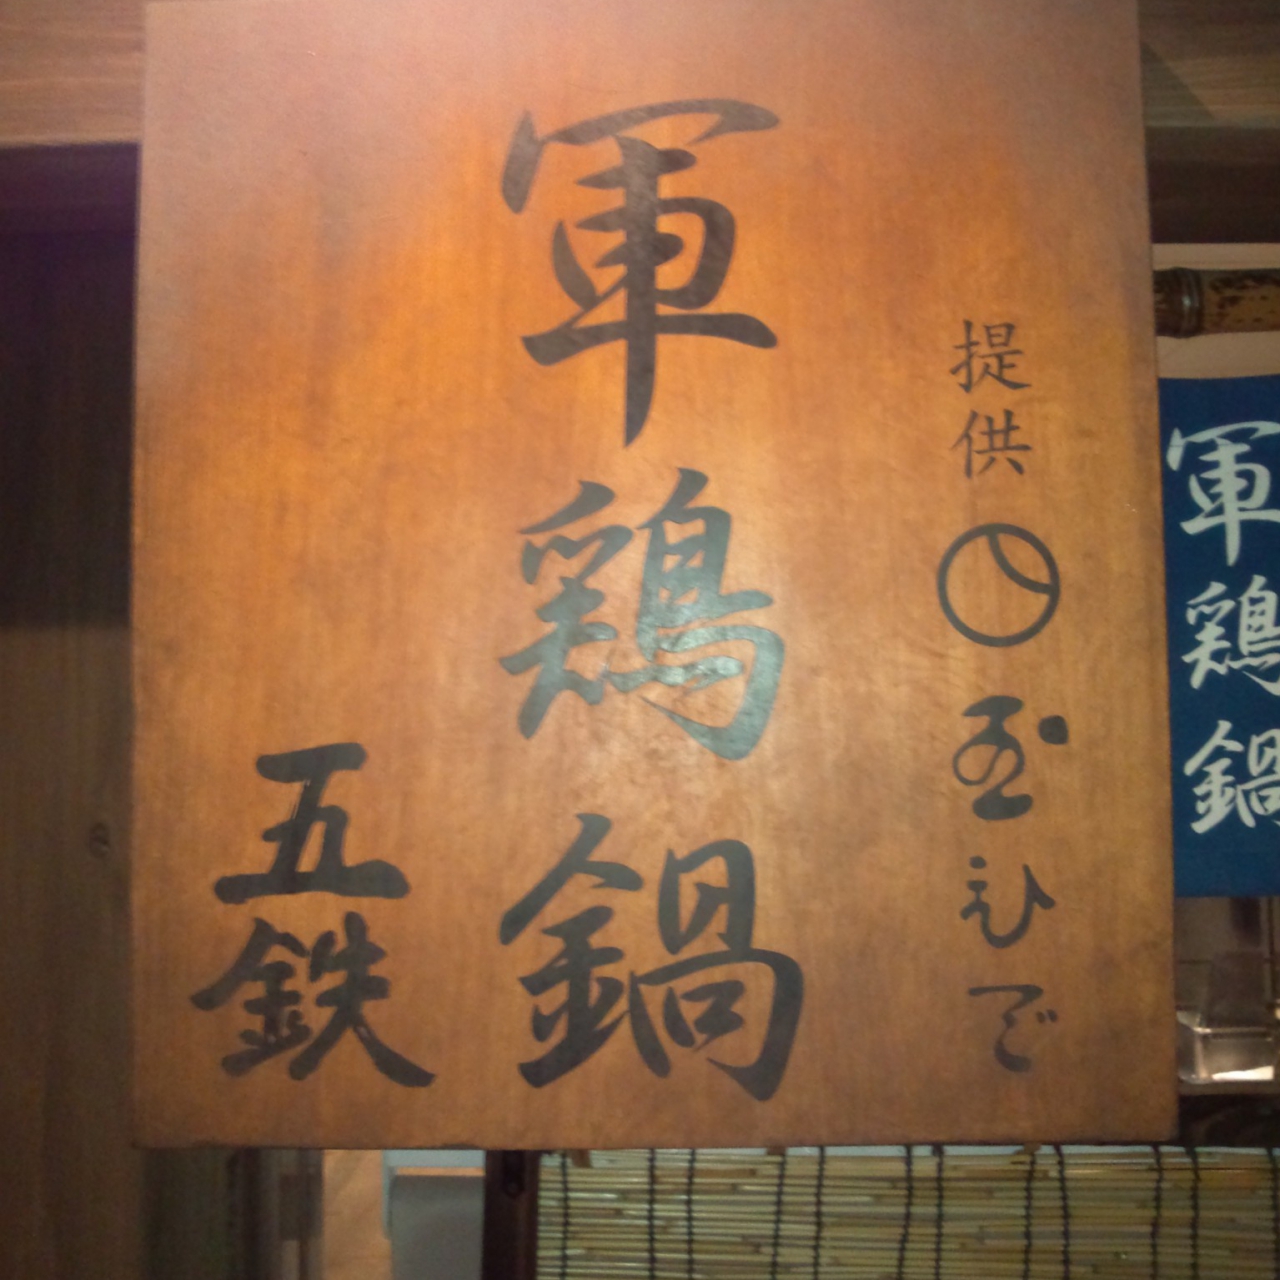 提供 玉ひで
軍鶏鍋
五鉄
軍鶏鍋